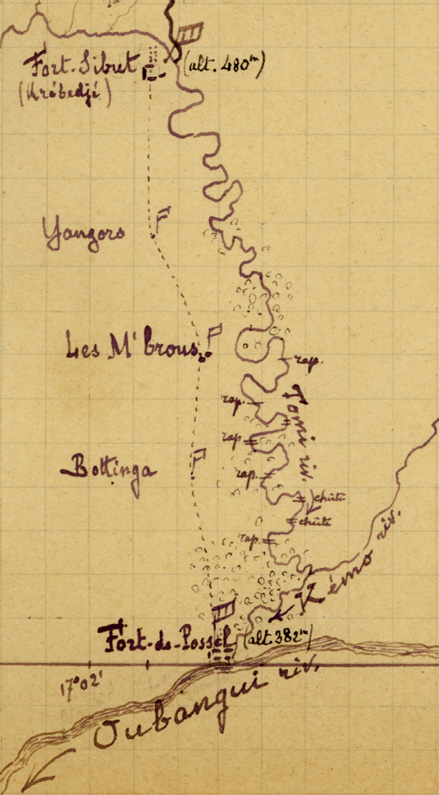 Fort-Sibut (alt. 480m)
(Krébedjé)
Yangoro
Les M'brous
rap.
Tomi riv.
rap.
rap.
Bottinga
rap.
chûte
chûte
rap.
Kémo riv.
Fort-de-Possel (alt. 382m)
17°02'
Oubangui riv.